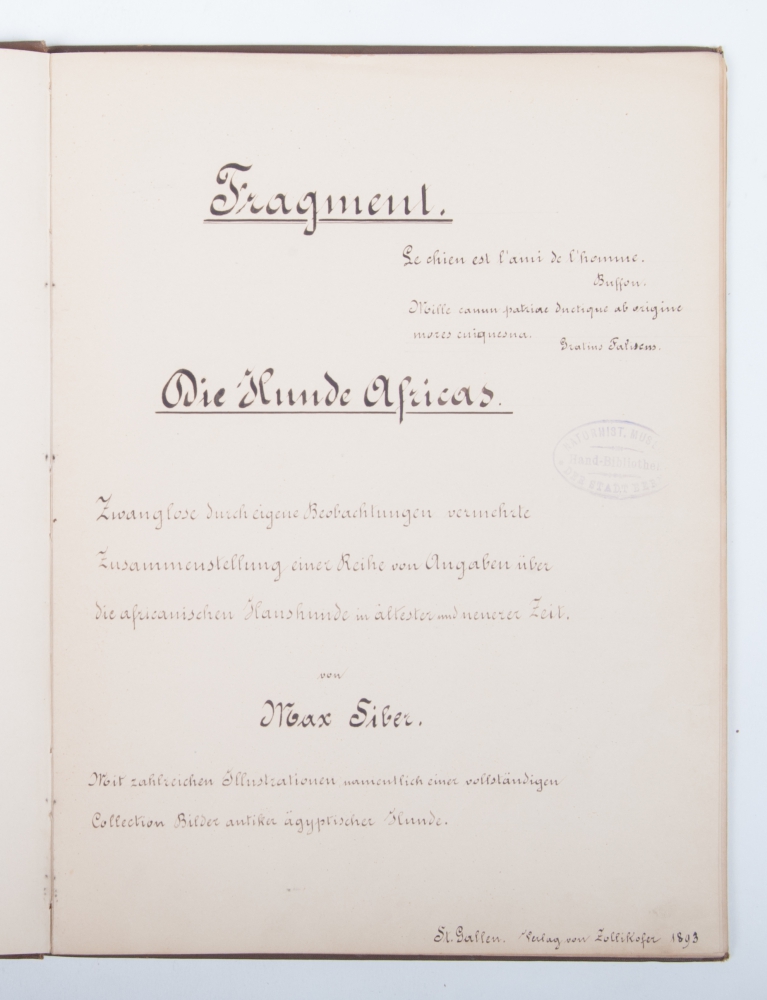 Fragment.
Le chien est l'ami de l'homme.
Buffon.
Mille canum patriae ductique ab origine
mores cuiquesua.
Gratius Faliscus.
Die Hunde Africas.
NATURHIST. MUS
Hand-Bibliothek
DER STADT BE
Zwanglose durch eigene Beobachtungen vermehrte
Zusammenstellung einer Reihe von Angaben über
die africanischen Haushunde in ältester und neuerer Zeit.
von
Max Siber.
Mit zahlreichen Illustrationen namentlich einer vollständigen
Collection Bilder antiker ägyptischer Hunde.
St. Gallen. Verlag von Zollikofer 1893